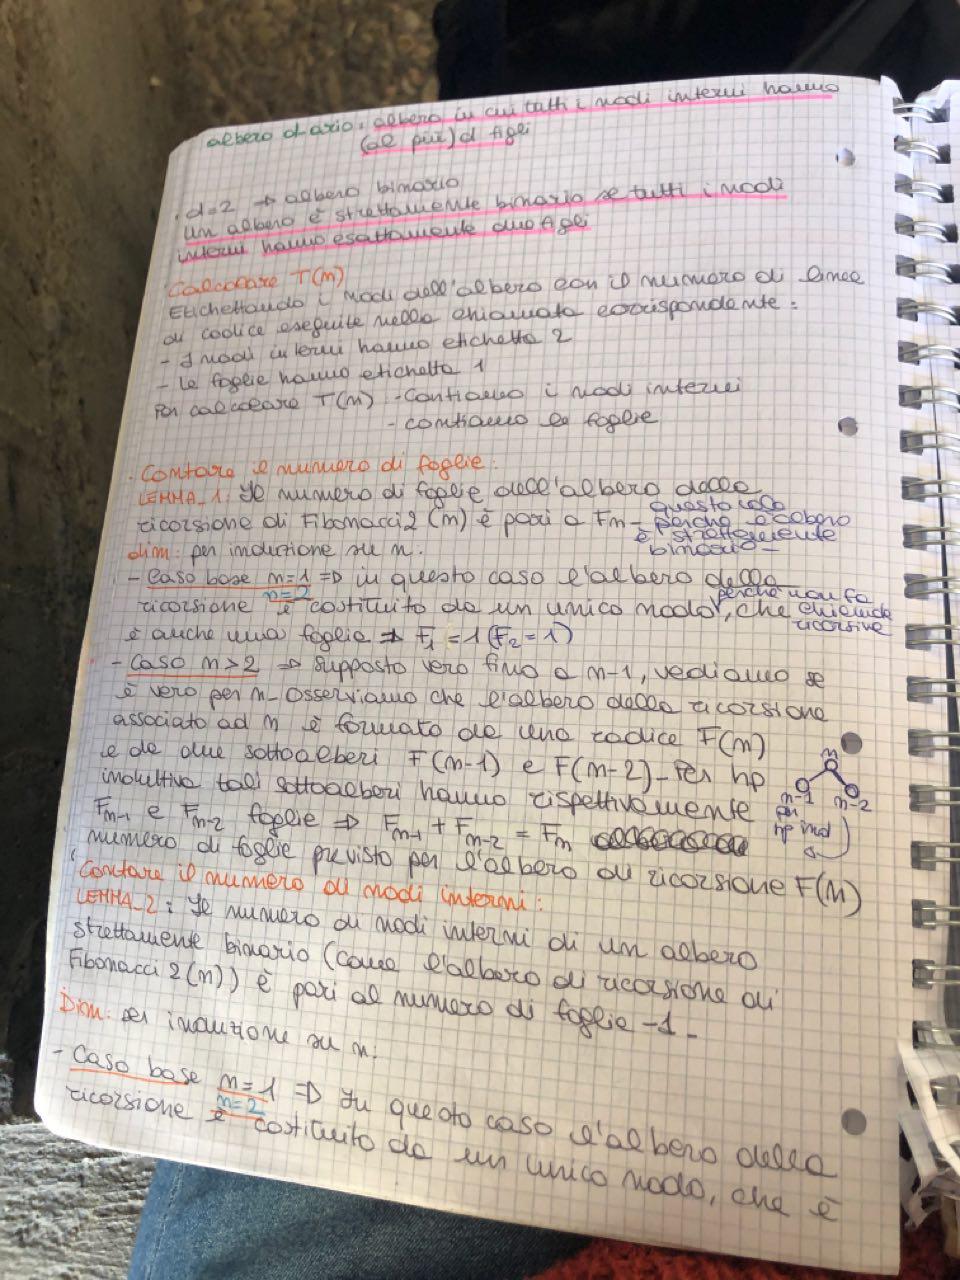 albero d-ario: albero in cui tutti i nodi interni hanno
(al più) d figli
. d=2 → albero binario
un albero è strettamente binario se tutti i nodi
interni hanno esattamente due figli
Calcolare T(n)
Etichettando i nodi dell'albero con il numero di linee
di codice eseguite nella chiamata corrispondente:
- I nodi interni hanno etichetta 2
- Le foglie hanno etichetta 1
Per calcolare T(n) - Contiamo i nodi interni
- contiamo le foglie
. Contare il numero di foglie:
LEMMA_1: Il numero di foglie dell'albero della
ricorsione di Fibonacci2 (n) è pari a Fn-
questo vale
perché l'albero
è strettamente
binario-
dim: per induzione su n:
- Caso base n=1 ⇒ in questo caso l'albero della
n=2
ricorsione è costituito da un unico nodo, che
perché non fa
chiamate
ricorsive
è anche una foglia ⇒ F1 = 1 (F2 = 1)
- Caso n>2 ⇒ supposto vero fino a n-1, vediamo se
è vero per n- Osserviamo che l'albero della ricorsione
associato ad n è formato da una radice F(n)
e da due sottoalberi F(n-1) e F(n-2)- Per hp
induttiva tali sottoalberi hanno rispettivamente
Fn-1 e Fn-2 foglie ⇒ Fn-1 + Fn-2 = Fn
n
n-1 n-2
per
hp ind
numero di foglie previsto per l'albero di ricorsione F(n)
Contare il numero di nodi interni:
LEMMA_2: Il numero di nodi interni di un albero
strettamente binario (come l'albero di ricorsione di
Fibonacci 2(n)) è pari al numero di foglie -1-
Dim: per induzione su n:
- Caso base n=1 ⇒ In questo caso l'albero della
n=2
ricorsione è costituito da un unico nodo, che è